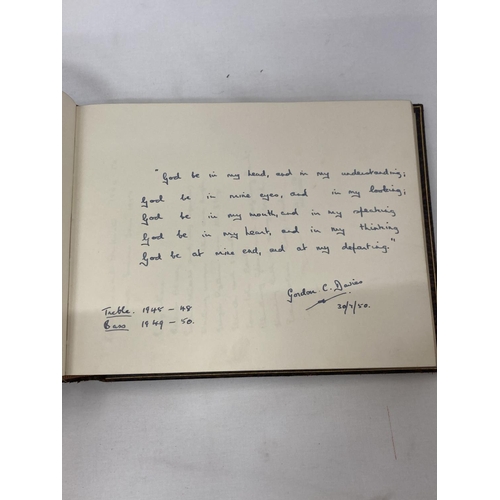 "God be in my head, and in my understanding;
God be in mine eyes, and in my looking;
God be in my mouth, and in my speaking
God be in my heart, and in my thinking
God be at mine end, and at my departing."
Gordon C. Davies
20/7/50.
Treble. 1945 - 48
Bass 1949 - 50.